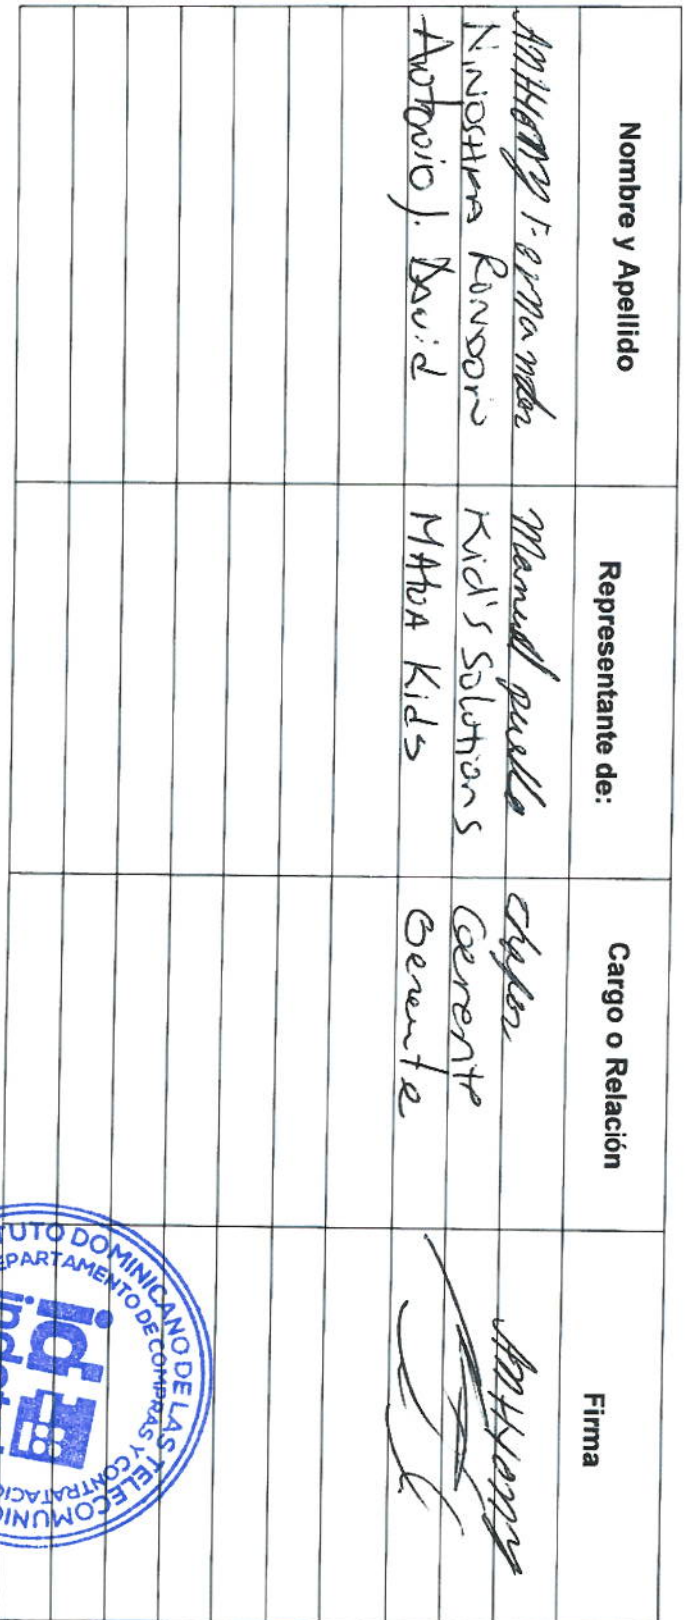 Nombre y Apellido Representante de: Cargo o Relación Firma
ANTHONY Fernandez Manuel puello chofer ANTHONY
NINOSHKA RONDON Kid's Solutions Gerente
Antonio J. David MAWA Kids Gerente
TUTO DOMINICANO DE LAS TELECOMUNIC
EPARTAMENTO DE COMPRAS Y CONTRATACIO